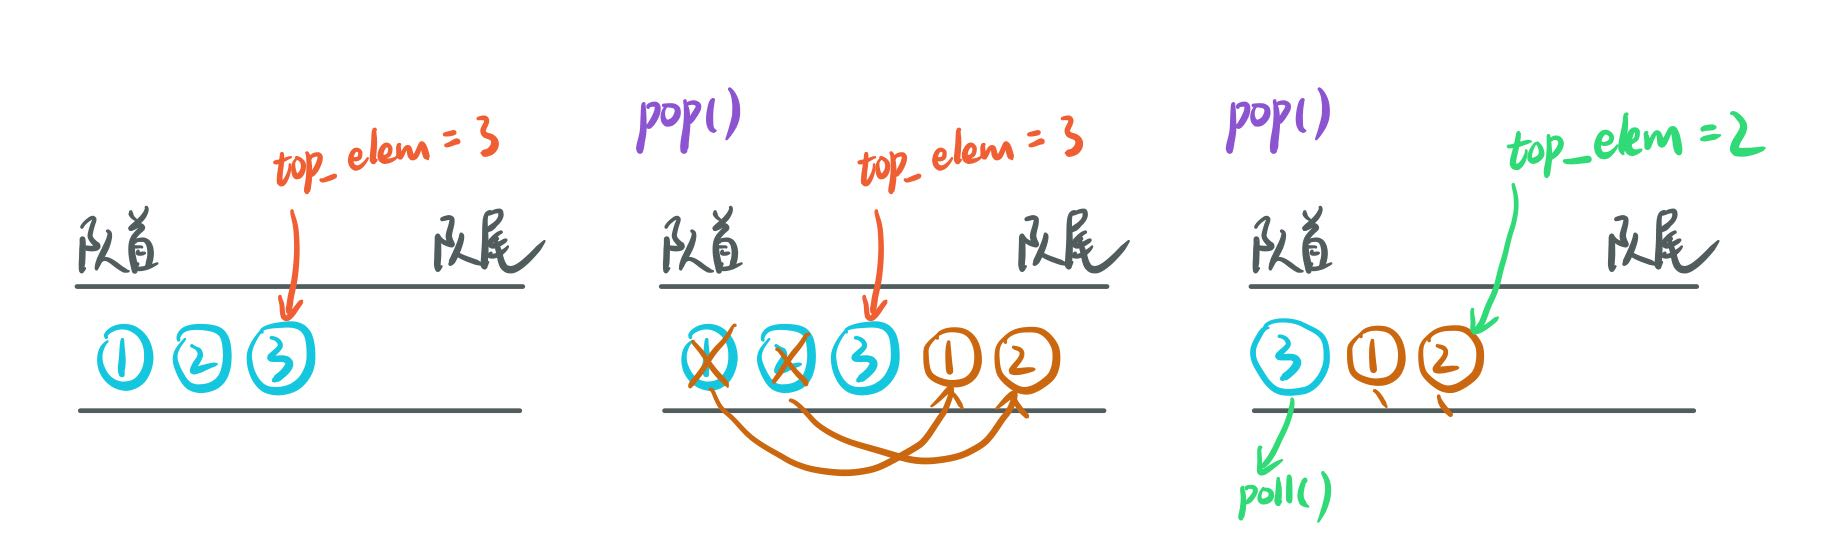 top_elem = 3
队首
队尾
1 2 3
pop()
top_elem = 3
队首
队尾
1 2 3 1 2
pop()
top_elem = 2
队首
队尾
3 1 2
poll()